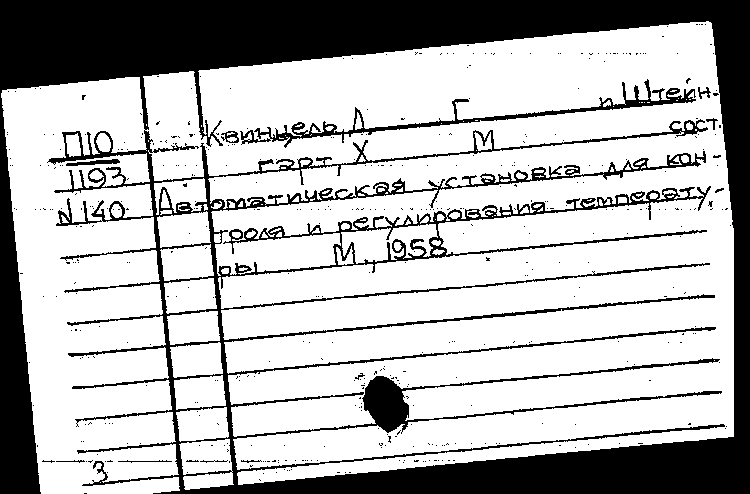 П10 Квинцель, Д Г и Штейн-
1193 гарт, Х М сост.
N 140 Автоматическая установка для кон-
троля и регулирования температу-
ры М., 1958
3